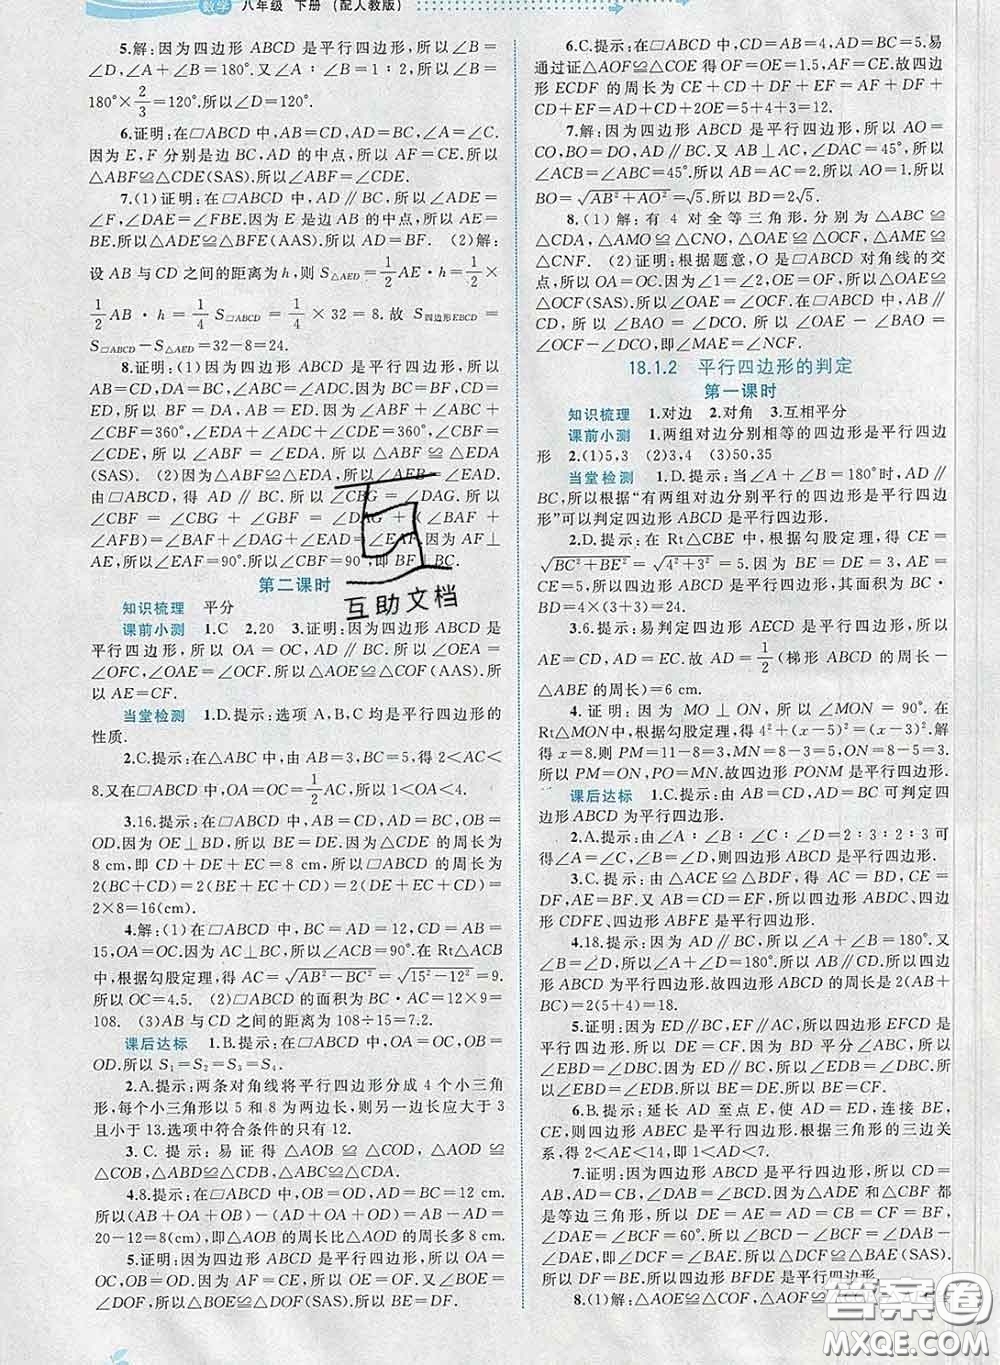 数学 八年级 下册 (配人教版)
5.解:因为四边形 ABCD 是平行四边形,所以∠B=
∠D,∠A+∠B=180°.又∠A∶∠B=1∶2,所以∠B=
180°×2/3=120°.所以∠D=120°.
6.证明:在▱ABCD 中,CD=AB,AD=BC,∠A=∠C.
因为 E,F 分别是边 BC,AD 的中点,所以 AF=CE.所以
△ABF≌△CDE(SAS).所以∠ABF=∠CDE.
7.(1)证明:在▱ABCD 中,AD∥BC,所以∠ADE=
∠F,∠DAE=∠FBE.因为 E 是边 AB 的中点,所以 AE=
BE.所以△ADE≌△BFE(AAS).所以 AD=BF. (2)解:
设 AB 与 CD 之间的距离为 h,则 S△AED=1/2AE·h=1/2×
1/2AB·h=1/4S▱ABCD=1/4×32=8.故 S四边形EBCD=
S▱ABCD−S△AED=32−8=24.
8.证明:(1)因为四边形 ABCD 是平行四边形,所以
AB=CD,AD=BC,∠ABC=∠ADC.因为 BF=BC,CD=
DE,所以 BF=DA,AB=ED.因为∠ABF+∠ABC+
∠CBF=360°,∠EDA+∠ADC+∠CDE=360°,∠CBF=
∠CDE,所以∠ABF=∠EDA.所以△ABF≌△EDA
(SAS). (2)因为△ABF≌△EDA,所以∠AFB=∠EAD.
由▱ABCD,得 AD∥BC.所以∠CBG=∠DAG.所以
∠FBC=∠CBG+∠GBF=∠DAG+(∠BAF+
∠AFB)=∠BAF+∠DAG+∠EAD=∠EAF.因为 AF⊥
AE,所以∠EAF=90°.所以∠CBF=90°,即 BF⊥BC.
第二课时
知识梳理 平分
课前小测 1.C 2.20 3.证明:因为四边形 ABCD 是
平行四边形,所以 OA=OC,AD∥BC.所以∠OEA=
∠OFC,∠OAE=∠OCF.所以△AOE≌△COF(AAS).所
以 AE=CF.
当堂检测 1.D.提示:选项 A,B,C 均是平行四边形的
性质.
2.C.提示:在△ABC 中,因为 AB=3,BC=5,得 2<AC<
8.又在▱ABCD 中,OA=OC=1/2AC,所以 1<OA<4.
3.16.提示:在▱ABCD 中,AB=CD,AD=BC,OB=
OD.因为 OE⊥BD,所以 BE=DE.因为△CDE 的周长为
8 cm,即 CD+DE+EC=8 cm.所以▱ABCD 的周长为
2(BC+CD)=2(BE+EC+CD)=2(DE+EC+CD)=
2×8=16(cm).
4.解:(1)在▱ABCD 中,BC=AD=12,CD=AB=
15,OA=OC.因为 AC⊥BC,所以∠ACB=90°.在 Rt△ACB
中,根据勾股定理,得 AC=√AB²−BC²=√15²−12²=9.
所以 OC=4.5. (2)▱ABCD 的面积为 BC·AC=12×9=
108. (3)AB 与 CD 之间的距离为 108÷15=7.2.
课后达标 1.B.提示:在▱ABCD 中,OA=OC,OB=
OD.所以 S₁=S₂=S₃=S₄.
2.A.提示:两条对角线将平行四边形分成 4 个小三角
形,每个小三角形以 5 和 8 为两边长,则另一边长应大于 3
且小于 13.选项中符合条件的只有 12.
3.C.提示:易证得△AOB≌△COD,△AOD≌
△COB,△ABD≌△CDB,△ABC≌△CDA.
4.8.提示:在▱ABCD 中,OB=OD,AD=BC=12 cm,
所以(AB+OA+OB)−(AD+OA+OD)=AB−AD=
20−12=8(cm),即△AOB 的周长比△AOD 的周长多 8 cm.
5.证明:因为四边形 ABCD 是平行四边形,所以 OA=
OC,OB=OD.因为 AF=CE,所以 OE=OF.因为∠BOE=
∠DOF,所以△BOE≌△DOF(SAS).所以 BE=DF.
6.C.提示:在▱ABCD 中,CD=AB=4,AD=BC=5.易
通过证△AOF≌△COE 得 OF=OE=1.5,AF=CE.故四边
形 ECDF 的周长为 CE+CD+DF+EF=AF+CD+DF+
CD+EF=AD+CD+2OE=5+4+3=12.
7.解:因为四边形 ABCD 是平行四边形,所以 AO=
CO,BO=DO,AD∥BC.又 AB⊥AC,∠DAC=45°,所以
∠ACB=∠ABC=45°.所以 AC=AB=2.所以 AO=1.所以
BO=√AB²+AO²=√5.所以 BD=2√5.
8.(1)解:有 4 对全等三角形.分别为△ABC≌
△CDA,△AMO≌△CNO,△OAE≌△OCF,△AME≌
△CNF. (2)证明:根据题意,O 是▱ABCD 对角线的交
点,所以 OA=OC.因为∠1=∠2,OE=OF,所以△OAE≌
△OCF(SAS).所以∠OAE=∠OCF.在▱ABCD 中,AB∥
DC,所以∠BAO=∠DCO.所以∠BAO−∠OAE=
∠DCO−∠OCF,即∠MAE=∠NCF.
18.1.2 平行四边形的判定
第一课时
知识梳理 1.对边 2.对角 3.互相平分
课前小测 1.两组对边分别相等的四边形是平行四边
形 2.(1)5,3 (2)3,4 (3)50,35
当堂检测 1.D.提示:当∠A+∠B=180°时,AD∥
BC,所以根据“有两组对边分别平行的四边形是平行四边
形”可以判定四边形 ABCD 是平行四边形.
2.D.提示:在 Rt△CBE 中,根据勾股定理,得 CE=
√BC²+BE²=√4²+3²=5.因为 BE=DE=3,AE=
CE=5,所以四边形 ABCD 是平行四边形,其面积为 BC·
BD=4×(3+3)=24.
3.6.提示:易判定四边形 AECD 是平行四边形,所以
AE=CD,AD=EC.故 AD=1/2(梯形 ABCD 的周长−
△ABE 的周长)=6 cm.
4.证明:因为 MO⊥ON,所以∠MON=90°.在
Rt△MON 中,根据勾股定理,得 4²+(x−5)²=(x−3)².解
得 x=8.则 PM=11−8=3,MN=8−3=5,ON=8−5=3.
所以 PM=ON,PO=MN.故四边形 PONM 是平行四边形.
课后达标 1.C.提示:由 AB=CD,AD=BC 可判定四
边形 ABCD 为平行四边形.
2.A.提示:由∠A∶∠B∶∠C∶∠D=2∶3∶2∶3 可
得∠A=∠C,∠B=∠D,则四边形 ABCD 是平行四边形.
3.C.提示:由△ACE≌△BDF,得 AC=BD,AE=
BF.因为 AB=CD=EF,所以四边形 ABDC、四边
形 CDFE、四边形 ABFE 是平行四边形.
4.18.提示:因为 AD∥BC,所以∠A+∠B=180°.又
∠A=∠C,所以∠B+∠C=180°.所以 AB∥CD.所以四边
形 ABCD 为平行四边形.故四边形 ABCD 的周长是 2(AB+
BC)=2(5+4)=18.
5.证明:因为 ED∥BC,EF∥AC,所以四边形 EFCD 是
平行四边形.所以 DE=CF.因为 BD 平分∠ABC,所以
∠EBD=∠DBC.因为 ED∥BC,所以∠EDB=∠DBC.所以
∠EBD=∠EDB.所以 BE=DE.所以 BE=CF.
6.B.提示:延长 AD 至点 E,使 AD=ED,连接 BE,
CE,则四边形 ABEC 是平行四边形.根据三角形的三边关
系,得 2<AE<14,即 1<AD<7.
7.证明:因为四边形 ABCD 是平行四边形,所以 CD=
AB,AD=CB,∠DAB=∠BCD.因为△ADE 和△CBF 都
是等边三角形,所以 DE=AE=AD=CB=CF=BF,
∠DAE=∠BCF=60°.所以∠BCD−∠BCF=∠DAB−
∠DAE,即∠DCF=∠BAE.所以△DCF≌△BAE(SAS).
所以 DF=BE.所以四边形 BFDE 是平行四边形.
8.(1)解:△AOE≌△COF,△AOF≌
互助文档
答案圈
MXQE.COM